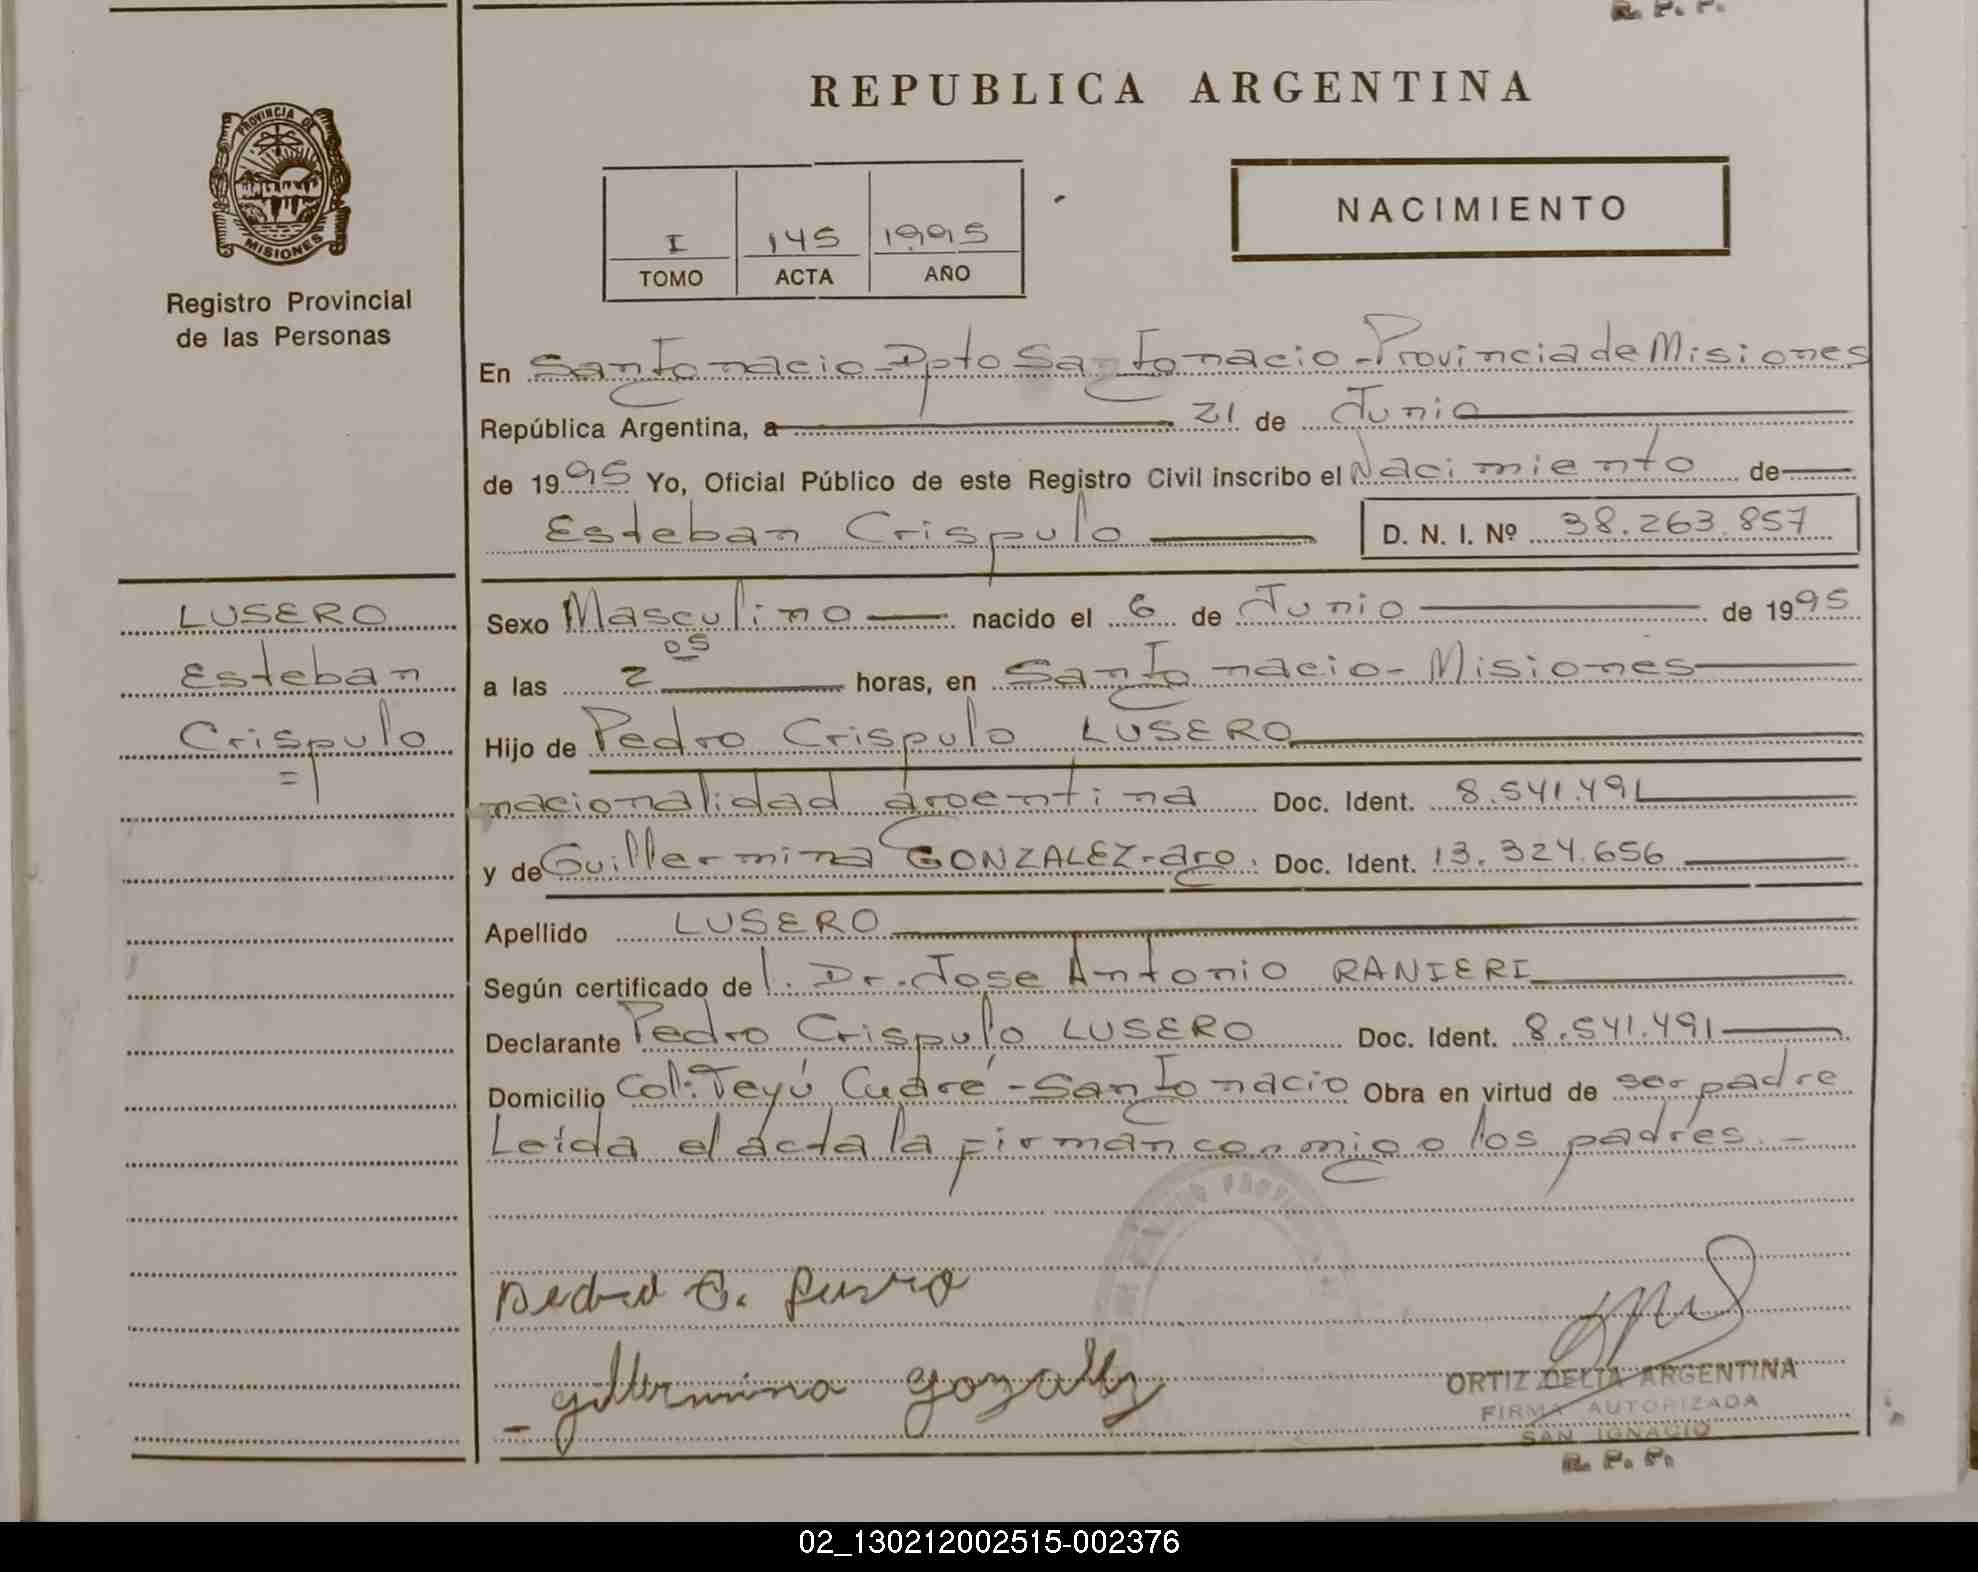 R. P. P.
REPUBLICA ARGENTINA
PROVINCIA DE
MISIONES
Registro Provincial
de las Personas
NACIMIENTO
I 145 1995
TOMO ACTA AÑO
En San Ignacio - Dpto San Ignacio - Provincia de Misiones
República Argentina, a 21 de Junio
de 1995 Yo, Oficial Público de este Registro Civil inscribo el Nacimiento de
Esteban Crispulo D. N. I. Nº 38.263.857
LUSERO
Esteban
Crispulo
Sexo Masculino nacido el 6 de Junio de 1995
a las 2 05 horas, en San Ignacio - Misiones
Hijo de Pedro Crispulo LUSERO
nacionalidad argentina Doc. Ident. 8.541.491
y de Guillermina GONZALEZ - arg. Doc. Ident. 13.324.656
Apellido LUSERO
Según certificado de l. Dr. Jose Antonio RANIERI
Declarante Pedro Crispulo LUSERO Doc. Ident. 8.541.491
Domicilio Col: Teyú Cuáre - San Ignacio Obra en virtud de ser padre
Leída el ácta la firman conmigo los padres. -
Pedro C. Lusero
Gillermina Gozalez
ORTIZ DELIA ARGENTINA
FIRMA AUTORIZADA
SAN IGNACIO
R. P. P.
02_130212002515-002376